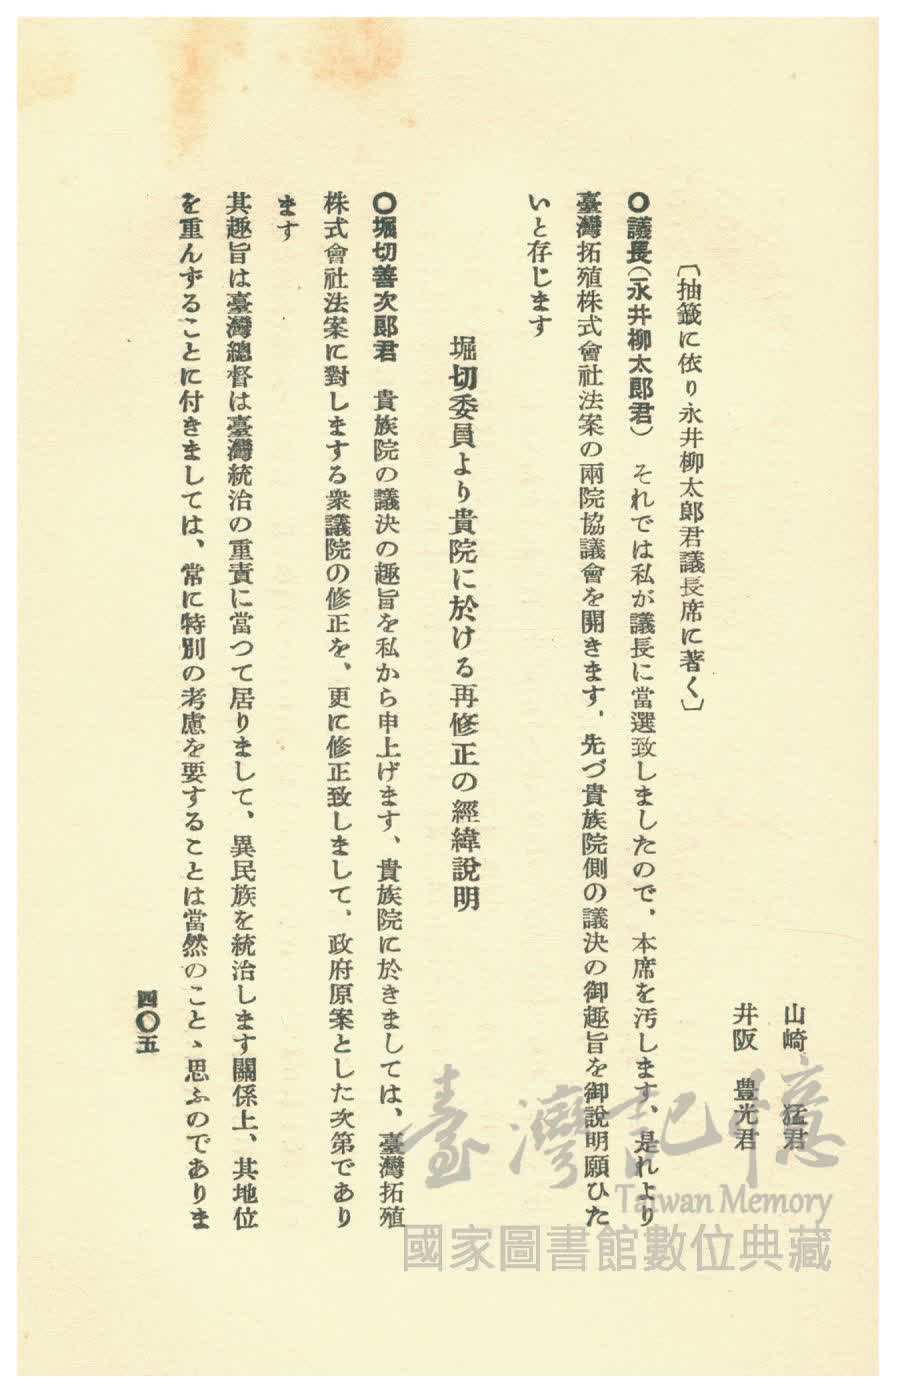 山崎　猛君
井阪　豊光君
〔抽籤に依り永井柳太郎君議長席に著く〕
〇議長(永井柳太郎君)　それでは私が議長に當選致しましたので、本席を汚します、是れより
臺灣拓殖株式會社法案の兩院協議會を開きます、先づ貴族院側の議決の御趣旨を御說明願ひた
いと存じます
堀切委員より貴院に於ける再修正の經緯說明
〇堀切善次郎君　貴族院の議決の趣旨を私から申上げます、貴族院に於きましては、臺灣拓殖
株式會社法案に對しまする衆議院の修正を、更に修正致しまして、政府原案とした次第であり
ます
其趣旨は臺灣總督は臺灣統治の重責に當つて居りまして、異民族を統治します關係上、其地位
を重んずることに付きましては、常に特別の考慮を要することは當然のことゝ思ふのでありま
四〇五
臺灣記憶
Taiwan Memory
國家圖書館數位典藏